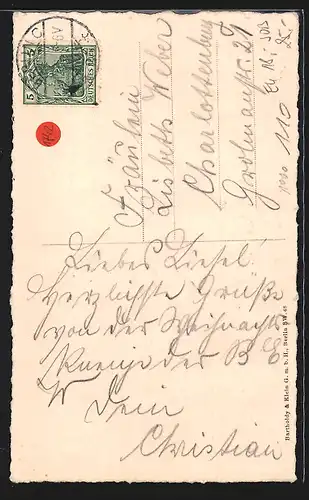 Fräulein
Lisbeth Weber
Charlottenburg
Grolmanstr. 27
Liebes Liesel!
Herzlichste Grüße
von der Weihnachts
Kneipe der B E
Dein
Christian
Bartholdy & Klein G. m. b. H., Berlin SW. 48
DEUTSCHES REICH
5
110